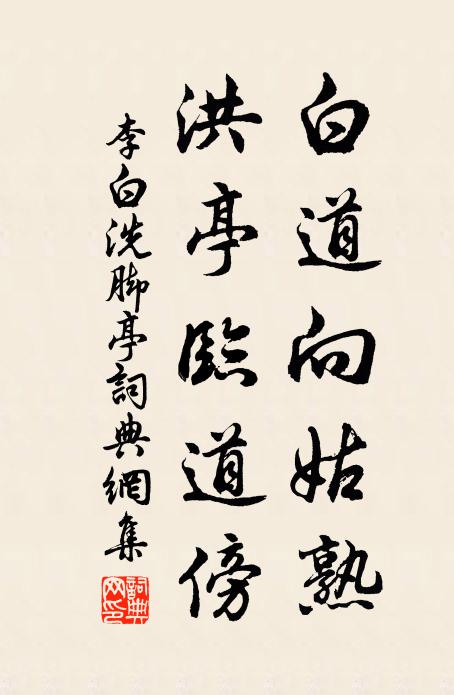 白道向姑熟
洪亭臨道傍
李白洗脚亭詞典網集
詞典
网印